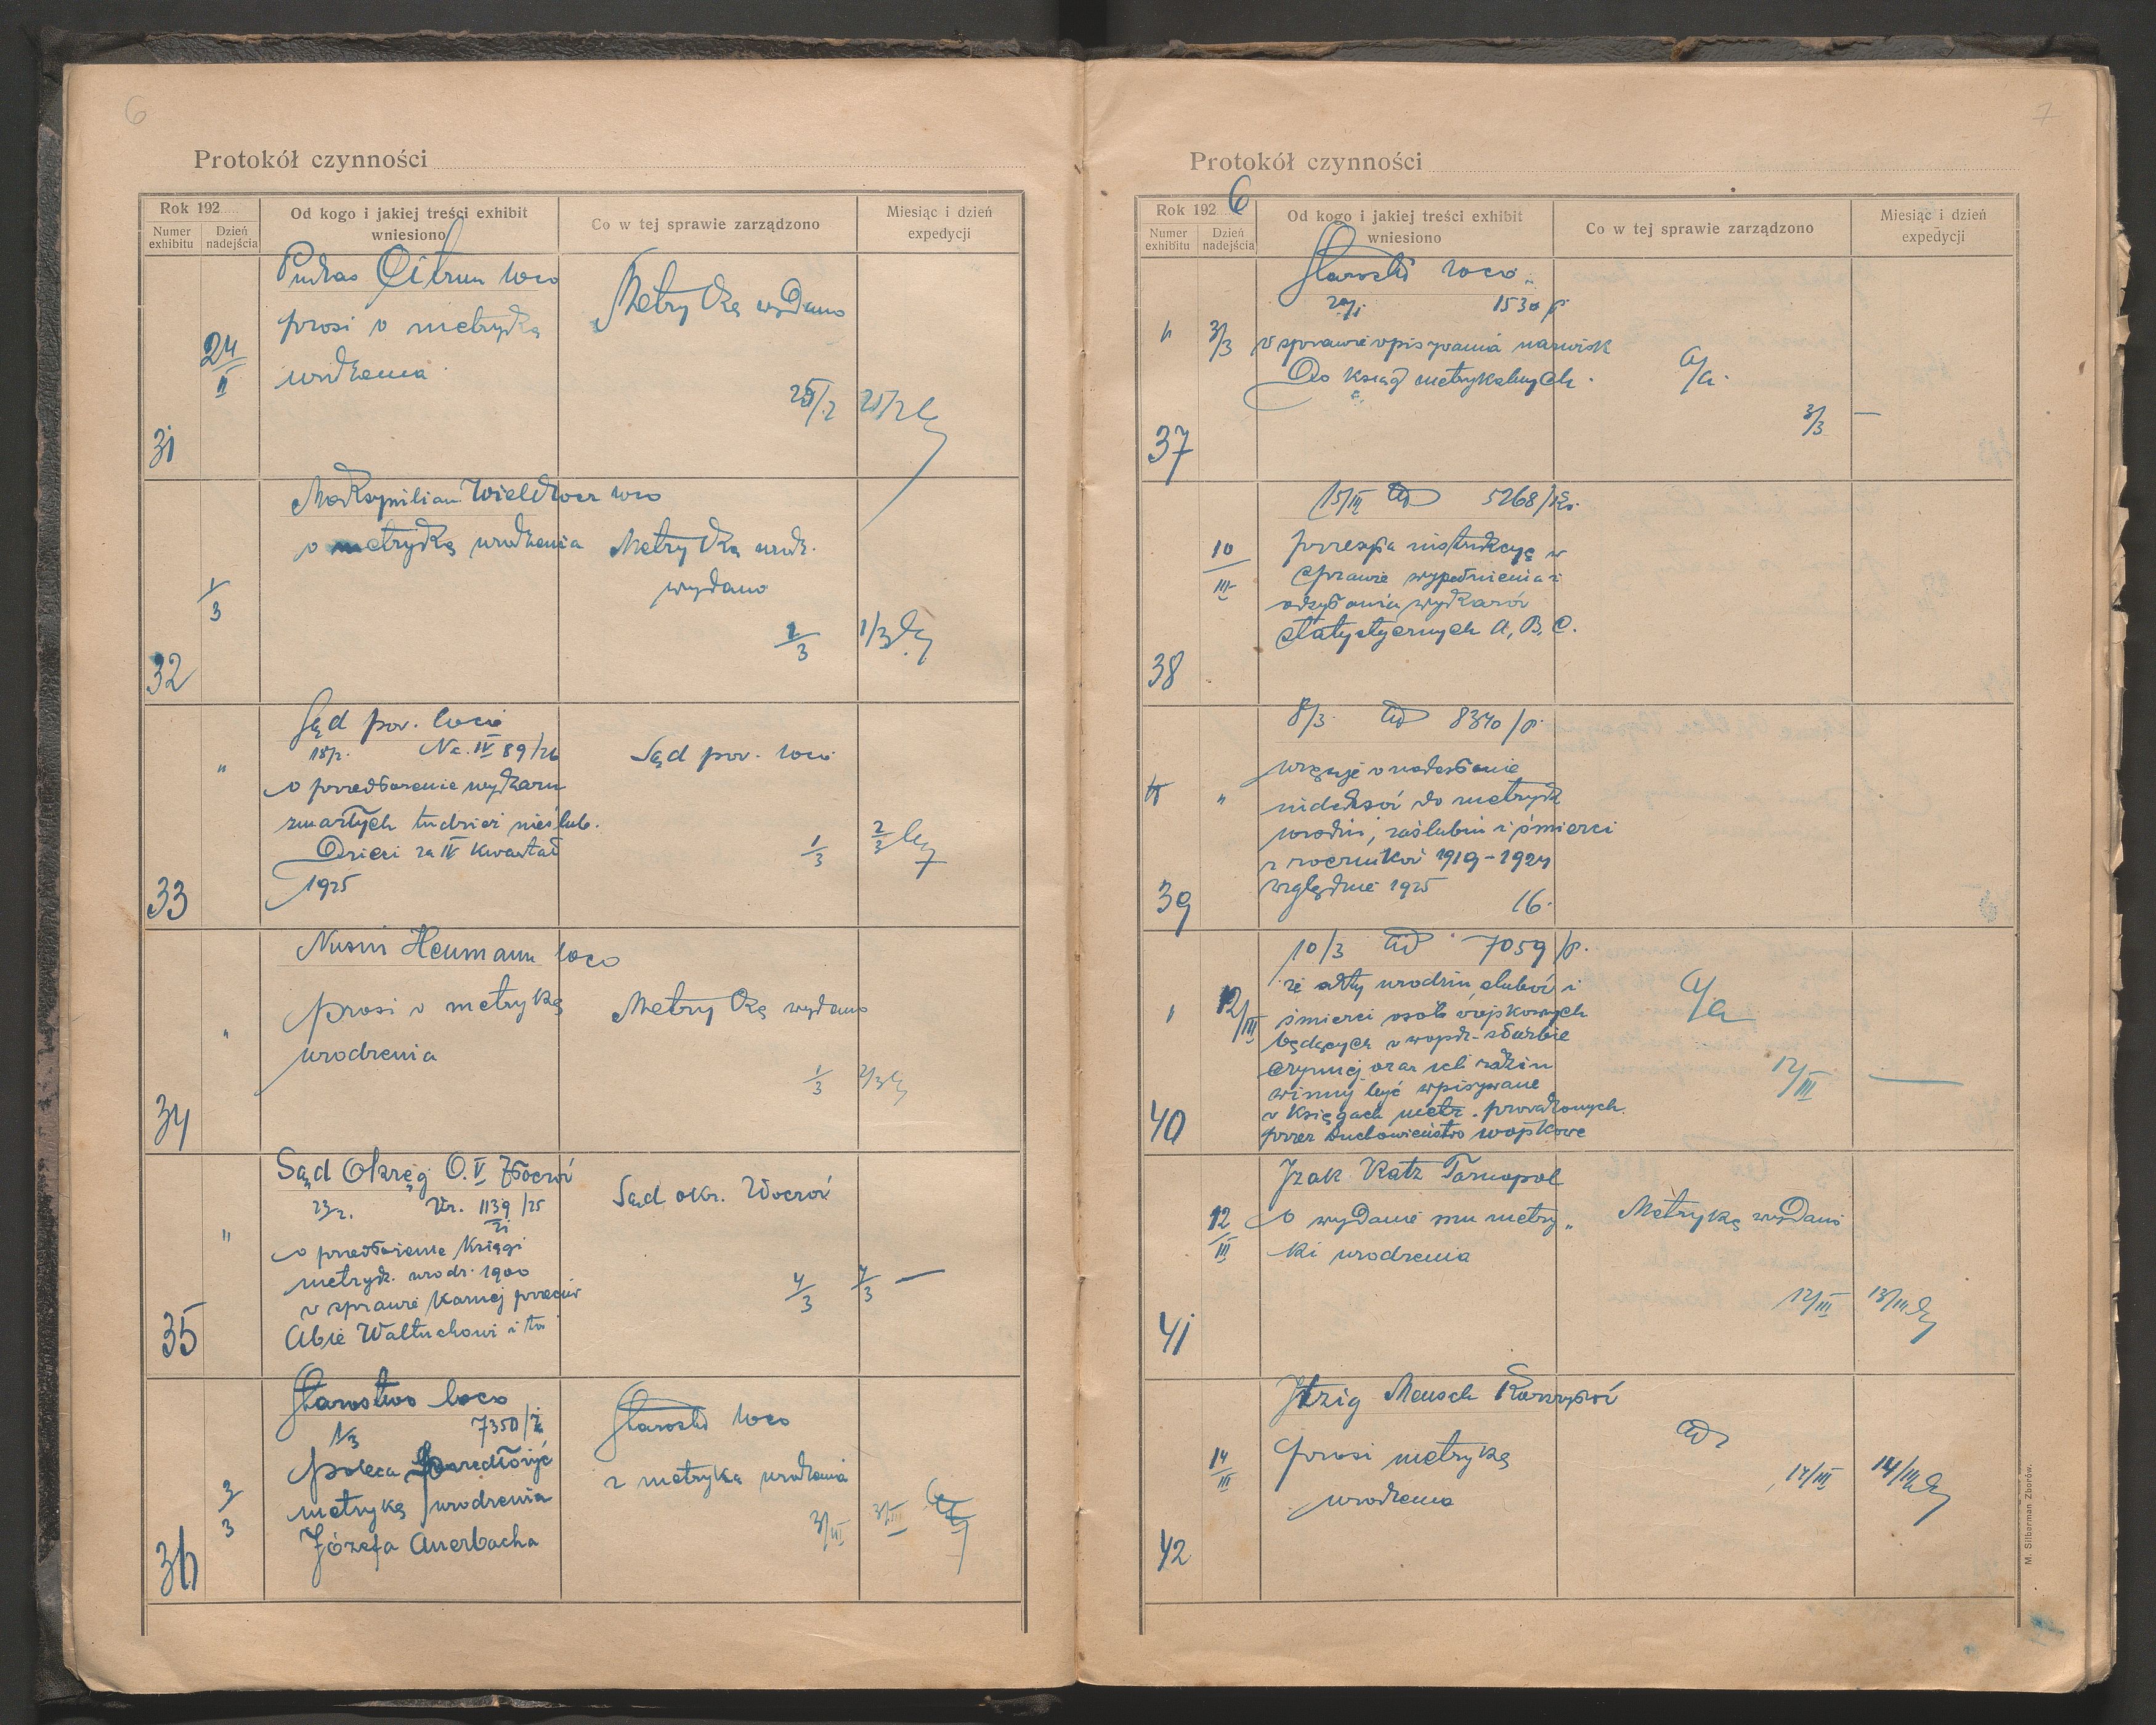 6
Protokół czynności
Rok 192
Numer exhibitu
Dzień nadejścia
Od kogo i jakiej treści exhibit wniesiono
Co w tej sprawie zarządzono
Miesiąc i dzień expedycji
31
24/II
Pinkas Citrun loco
prosi o metrykę
urodzenia
Metrykę wydano
25/2
25/2
32
1/3
Maksymilian loco
o metrykę urodzenia
Metrykę urodz.
wydano
1/3
1/3
33
"
Sąd pow. loco
18/2. Nc. IV 89/26
o przedłożenie wykazu
zmarłych tudzież nieślub.
Dzieci za IV kwartał
1925
Sąd pow. loco
1/3
2/3
34
"
Nusin Heumann loco
prosi o metrykę
urodzenia
Metrykę wydano
1/3
2/3
35
"
Sąd Okręg O. V Złoczów
23/2. Vr. 1139/25
o przedłożenie księgi
metryk. urodz. 1900
w sprawie karnej przeciw
Abie Waltuchowi i tow
Sąd okr. Złoczów
4/3
4/3 —
36
3/3
Starostwo loco
1/3 7350/
poleca przedłożyć
metrykę urodzenia
Józefa Auerbacha
Starostwo loco
z metryką urodzenia
3/III
3/III
7
Protokół czynności
Rok 1926
Numer exhibitu
Dzień nadejścia
Od kogo i jakiej treści exhibit wniesiono
Co w tej sprawie zarządzono
Miesiąc i dzień expedycji
37
3/3
Starostwo loco
1530
w sprawie wpisywania nazwisk
Do ksiąg metrykalnych.
a/a.
3/3 —
38
10/III
15/III 5268/
przesyła instrukcyę w
sprawie wypełnienia i
odsyłania wykazów
statystycznych A, B, C.
39
"
8/3. 8340/p.
wzywa o nadesłanie
indeksów do metryk
urodzin, zaślubin i śmierci
z roczników 1919-1924
względnie 1925
16.
40
12/III
10/3 7059/p.
że akty urodzin ślubów i
śmierci osób wojskowych
będących w wojsk. służbie
czynnej oraz ich rodzin
winny być wpisywane
w księgach metr. prowadzonych
przez Duchowieństwo wojskowe
a/a
12/III —
41
12/III
Izak Katz Tarnopol
o wydanie mu metry„
ki urodzenia
Metrykę wydano
12/III
13/III
42
14/III
Itzig Mensch
prosi metrykę
urodzenia
14/III
14/III
M. Silberman Zborów.